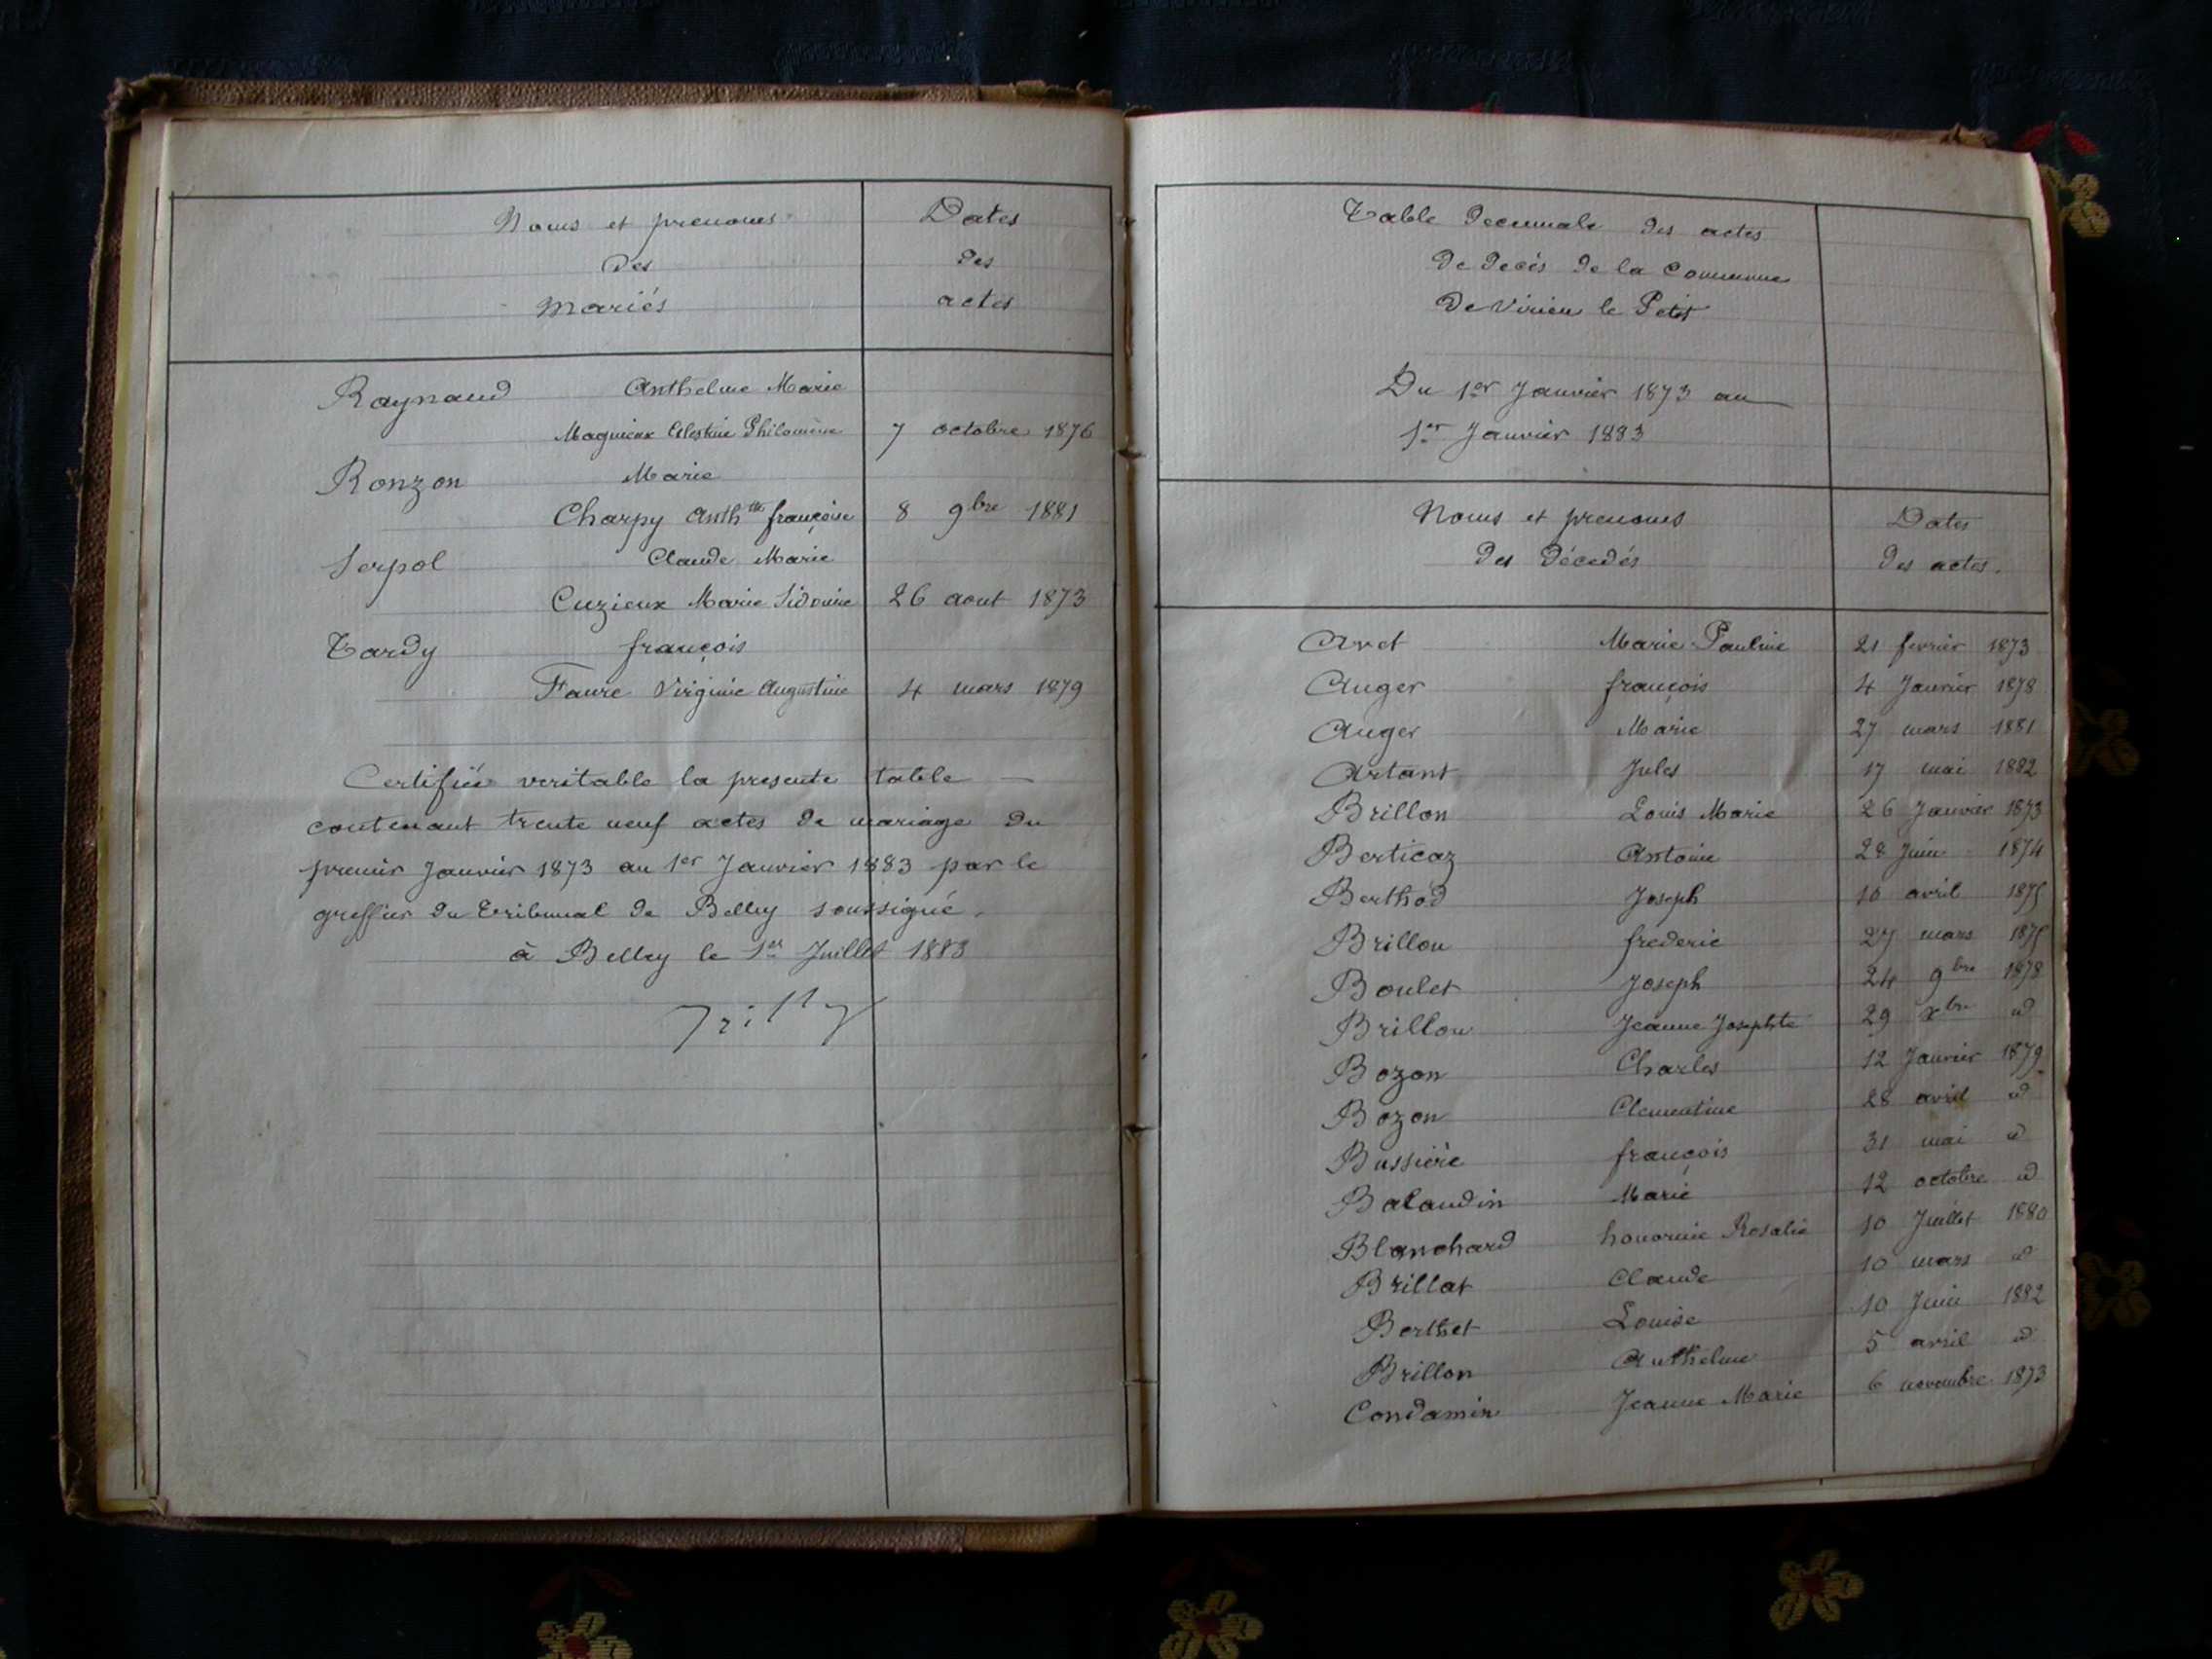 Noms et prenoms
Des
Mariés
Dates
des
actes
Raynaud Anthelme Marie
Magnieux Celestine Philomène 7 octobre 1876
Ronzon Marie
Charpy Anth^lle françoise 8 9bre 1881
Serpol Claude Marie
Cuzieux Marie Sidonie 26 aout 1873
Tardy françois
Faure Virginie Augustine 4 mars 1879
Certifiée veritable la presente table —
contenant trente neuf actes de mariage du
premier Janvier 1873 au 1er Janvier 1883 par le
greffier du Tribunal de Belley soussigné.
à Belley le 1er Juillet 1883
Table Decennale des actes
De Decès De la Commune
De Virieu le Petit
Du 1er Janvier 1873 au
1er Janvier 1883
Noms et prenoms
des Décedés
Dates
des actes.
Avet Marie Pauline 21 fevrier 1873
Auger françois 4 Janvier 1878
Auger Marie 27 mars 1881
Artant Jules 17 mai 1882
Brillon Louis Marie 26 Janvier 1873
Berticaz Antoine 28 Juin 1874
Berthod Joseph 10 avril 1875
Brillon frederic 27 mars 1875
Boulet Joseph 24 9bre 1878
Brillon Jeanne Josephte 29 xbre id
Bozon Charles 12 Janvier 1879
Bozon Clementine 28 avril id
Bussière françois 31 mai id
Balandin Marie 12 octobre id
Blanchard honorine Rosalie 10 Juillet 1880
Brillat Claude 10 mars id
Berthet Louise 10 Juin 1882
Brillon Anthelme 5 avril id
Condamin Jeanne Marie 6 novembre 1873